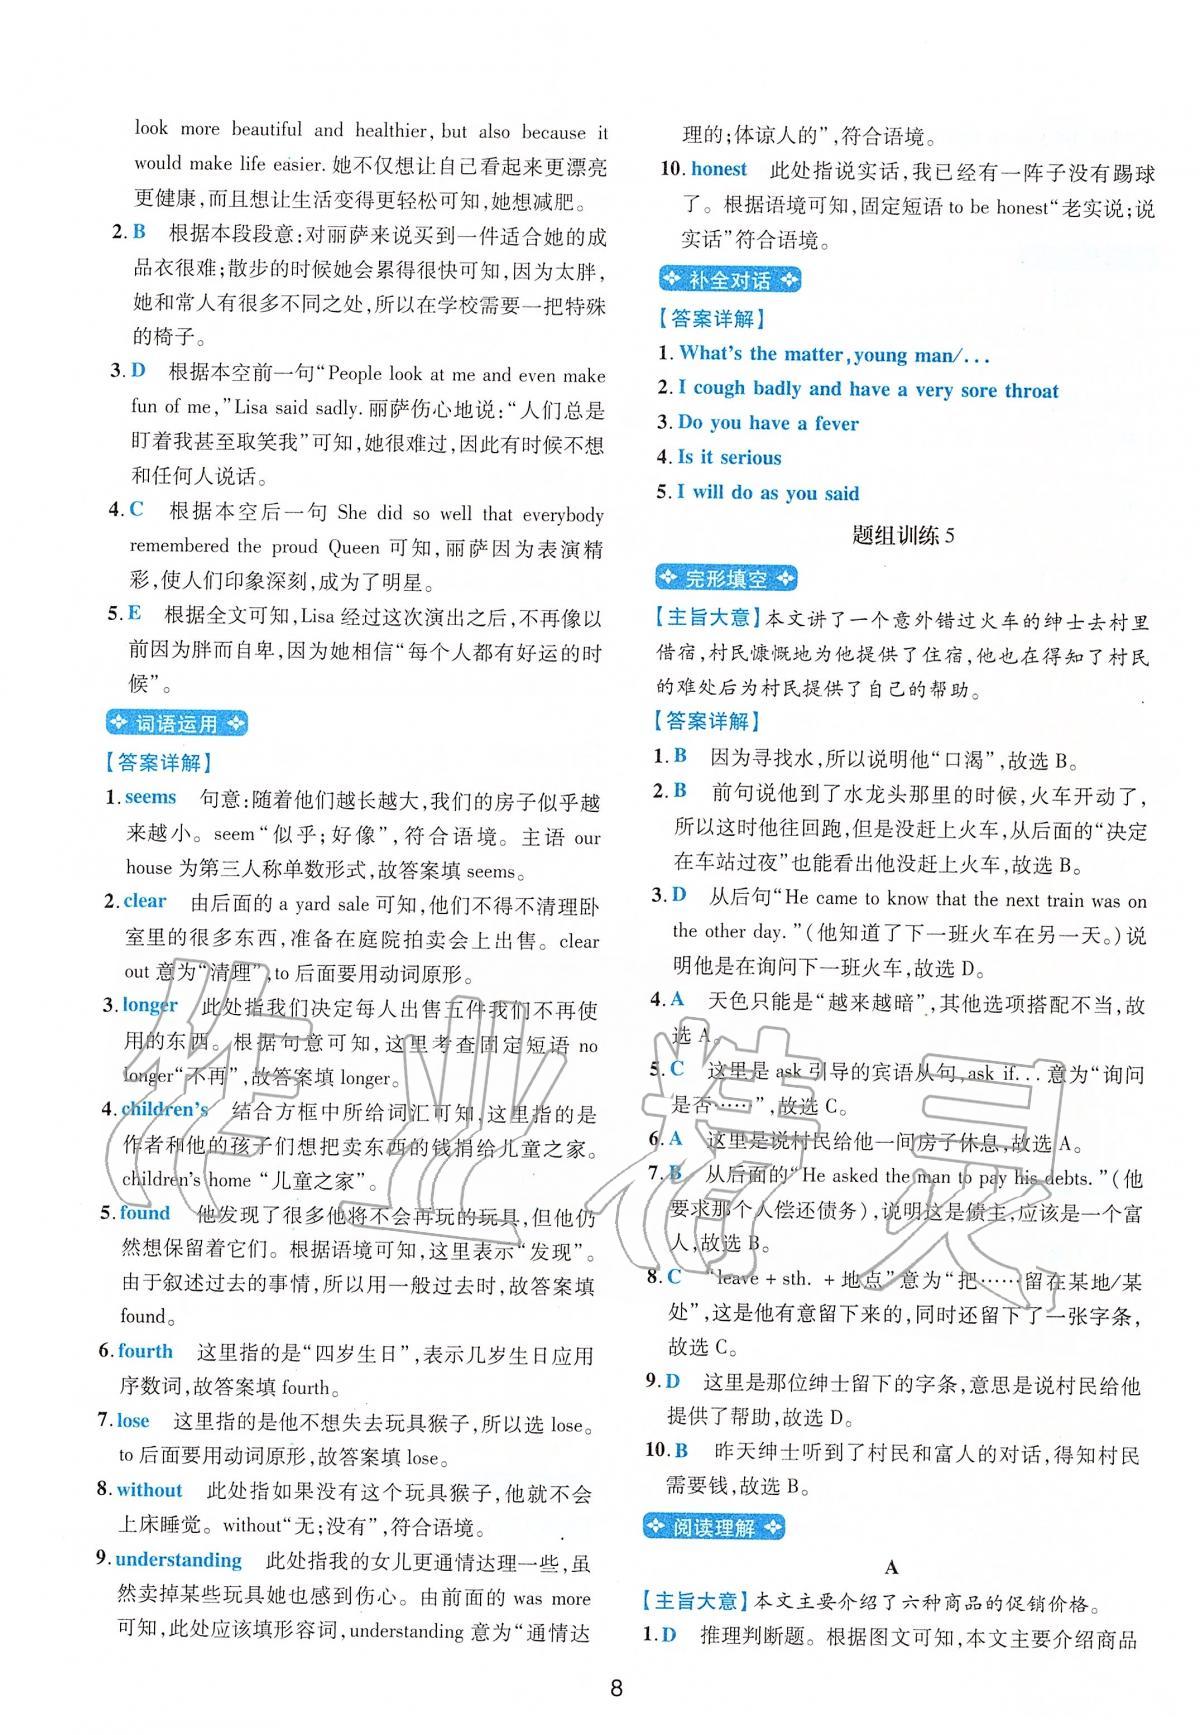 look more beautiful and healthier, but also because it
would make life easier. 她不仅想让自己看起来更漂亮
更健康，而且想让生活变得更轻松可知，她想减肥。
2. B 根据本段段意：对丽萨来说买到一件适合她的成
品衣很难；散步的时候她会累得很快可知，因为太胖，
她和常人有很多不同之处，所以在学校需要一把特殊
的椅子。
3. D 根据本空前一句“People look at me and even make
fun of me,”Lisa said sadly. 丽萨伤心地说：“人们总是
盯着我甚至取笑我”可知，她很难过，因此有时候不想
和任何人说话。
4. C 根据本空后一句 She did so well that everybody
remembered the proud Queen 可知，丽萨因为表演精
彩，使人们印象深刻，成为了明星。
5. E 根据全文可知，Lisa 经过这次演出之后，不再像以
前因为胖而自卑，因为她相信“每个人都有好运的时
候”。
词语运用
【答案详解】
1. seems 句意：随着他们越长越大，我们的房子似乎越
来越小。seem“似乎；好像”，符合语境。主语 our
house 为第三人称单数形式，故答案填 seems。
2. clear 由后面的 a yard sale 可知，他们不得不清理卧
室里的很多东西，准备在庭院拍卖会上出售。clear
out 意为“清理”，to 后面要用动词原形。
3. longer 此处指我们决定每人出售五件我们不再使
用的东西。根据句意可知，这里考查固定短语 no
longer“不再”，故答案填 longer。
4. children's 结合方框中所给词汇可知，这里指的是
作者和他的孩子们想把卖东西的钱捐给儿童之家。
children's home “儿童之家”。
5. found 他发现了很多他将不会再玩的玩具，但他仍
然想保留着它们。根据语境可知，这里表示“发现”。
由于叙述过去的事情，所以用一般过去时，故答案填
found。
6. fourth 这里指的是“四岁生日”，表示几岁生日应用
序数词，故答案填 fourth。
7. lose 这里指的是他不想失去玩具猴子，所以选 lose。
to 后面要用动词原形，故答案填 lose。
8. without 此处指如果没有这个玩具猴子，他就不会
上床睡觉。without“无；没有”，符合语境。
9. understanding 此处指我的女儿更通情达理一些，虽
然卖掉某些玩具她也感到伤心。由前面的 was more
可知，此处应该填形容词，understanding 意为“通情达
理的；体谅人的”，符合语境。
10. honest 此处指说实话，我已经有一阵子没有踢球
了。根据语境可知，固定短语 to be honest“老实说；说
实话”符合语境。
补全对话
【答案详解】
1. What's the matter, young man/...
2. I cough badly and have a very sore throat
3. Do you have a fever
4. Is it serious
5. I will do as you said
题组训练 5
完形填空
【主旨大意】本文讲了一个意外错过火车的绅士去村里
借宿，村民慷慨地为他提供了住宿，他也在得知了村民
的难处后为村民提供了自己的帮助。
【答案详解】
1. B 因为寻找水，所以说明他“口渴”，故选 B。
2. B 前句说他到了水龙头那里的时候，火车开动了，
所以这时他往回跑，但是没赶上火车，从后面的“决定
在车站过夜”也能看出他没赶上火车，故选 B。
3. D 从后句“He came to know that the next train was on
the other day.”（他知道了下一班火车在另一天。）说
明他是在询问下一班火车，故选 D。
4. A 天色只能是“越来越暗”，其他选项搭配不当，故
选 A。
5. C 这里是 ask 引导的宾语从句，ask if... 意为“询问
是否……”，故选 C。
6. A 这里是说村民给他一间房子休息，故选 A。
7. B 从后面的“He asked the man to pay his debts.”（他
要求那个人偿还债务），说明这是债主，应该是一个富
人，故选 B。
8. C “leave + sth. + 地点”意为“把……留在某地/某
处”，这是他有意留下来的，同时还留下了一张字条，
故选 C。
9. D 这里是那位绅士留下的字条，意思是说村民给他
提供了帮助，故选 D。
10. B 昨天绅士听到了村民和富人的对话，得知村民
需要钱，故选 B。
阅读理解
A
【主旨大意】本文主要介绍了六种商品的促销价格。
1. D 推理判断题。根据图文可知，本文主要介绍商品
8
作业精灵